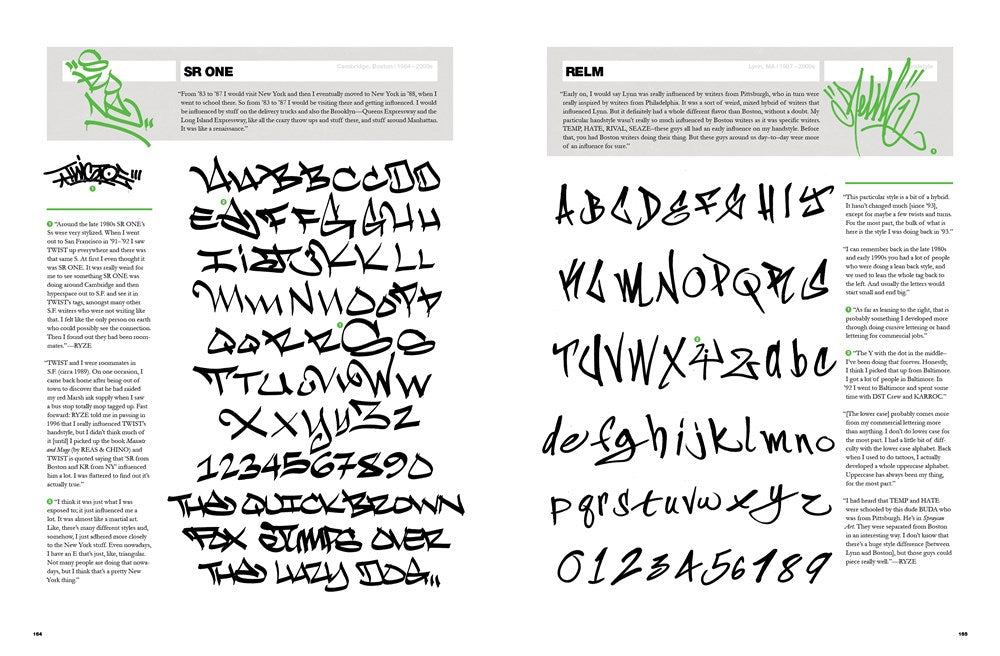 SR ONE
Cambridge, Boston | 1984–2000s
“From ’83 to ’87 I would visit New York and then I eventually moved to New York in ’88, when I
went to school there. So from ’83 to ’87 I would be visiting there and getting influenced. I would
be influenced by stuff on the delivery trucks and also the Brooklyn—Queens Expressway and the
Long Island Expressway, like all the crazy throw ups and stuff there, and stuff around Manhattan.
It was like a renaissance.”
TWISTOE
1
1 “Around the late 1980s SR ONE’s
Ss were very stylized. When I went
out to San Francisco in ’91–’92 I saw
TWIST up everywhere and there was
that same S. At first I even thought it
was SR ONE. It was really weird for
me to see something SR ONE was
doing around Cambridge and then
hyperspace out to S.F. and see it in
TWIST’s tags, amongst many other
S.F. writers who were not writing like
that. I felt like the only person on earth
who could possibly see the connection.
Then I found out they had been room-
mates.”—RYZE
“TWIST and I were roommates in
S.F. (circa 1989). On one occasion, I
came back home after being out of
town to discover that he had raided
my red Marsh ink supply when I saw
a bus stop totally mop tagged up. Fast
forward: RYZE told me in passing in
1996 that I really influenced TWIST’s
handstyle, but I didn’t think much of
it [until] I picked up the book Mascots
and Mugs (by REAS & CHINO) and
TWIST is quoted saying that ‘SR from
Boston and KR from NY’ influenced
him a lot. I was flattered to find out it’s
actually true.”
2 “I think it was just what I was
exposed to; it just influenced me a
lot. It was almost like a martial art.
Like, there’s many different styles and,
somehow, I just adhered more closely
to the New York stuff. Even nowadays,
I have an E that’s just, like, triangular.
Not many people are doing that nowa-
days, but I think that’s a pretty New
York thing.”
UABBCCDD
2
EEFFGGHH
IiJJKKLL
MmNNOOPP
1
QQRRSS
TTUUVVWW
XXYYZZ
1234567890
THE QUICK BROWN
FOX JUMPS OVER
THE LAZY DOG,,
164
RELM
Lynn, MA | 1987–2000s
“Early on, I would say Lynn was really influenced by writers from Pittsburgh, who in turn were
really inspired by writers from Philadelphia. It was a sort of weird, mixed hybrid of writers that
influenced Lynn. But it definitely had a whole different flavor than Boston, without a doubt. My
particular handstyle wasn’t really so much influenced by Boston writers as it was specific writers.
TEMP, HATE, RIVAL, SEAZE–these guys all had an early influence on my handstyle. Before
that, you had Boston writers doing their thing. But these guys around us day–to–day were more
of an influence for sure.”
RELM
1
ABCDEFGHIJ
KLMNOPQRS
2
TUVWXYZabc
defghijklmno
pqrstuvwxyz
0123456789
“This particular style is a bit of a hybrid.
It hasn’t changed much [since ’93],
except for maybe a few twists and turns.
For the most part, the bulk of what is
here is the style I was doing back in ’93.”
“I can remember back in the late 1980s
and early 1990s you had a lot of people
who were doing a lean back style, and
we used to lean the whole tag back to
the left. And usually the letters would
start small and end big.”
1 “As far as leaning to the right, that is
probably something I developed more
through doing cursive lettering or hand
lettering for commercial jobs.”
2 “The Y with the dot in the middle–
I’ve been doing that forever. Honestly,
I think I picked that up from Baltimore.
I got a lot of people in Baltimore. In
’92 I went to Baltimore and spent some
time with DST Crew and KARROC.”
“[The lower case] probably comes more
from my commercial lettering more
than anything. I don’t do lower case for
the most part. I had a little bit of diff-
culty with the lower case alphabet. Back
when I used to do tattoos, I actually
developed a whole uppercase alphabet.
Uppercase has always been my thing,
for the most part.”
“I had heard that TEMP and HATE
were schooled by this dude BUDA who
was from Pittsburgh. He’s in Spraycan
Art. They were separated from Boston
in an interesting way. I don’t know that
there’s a huge style difference [between
Lynn and Boston], but those guys could
piece really well.”—RYZE
165